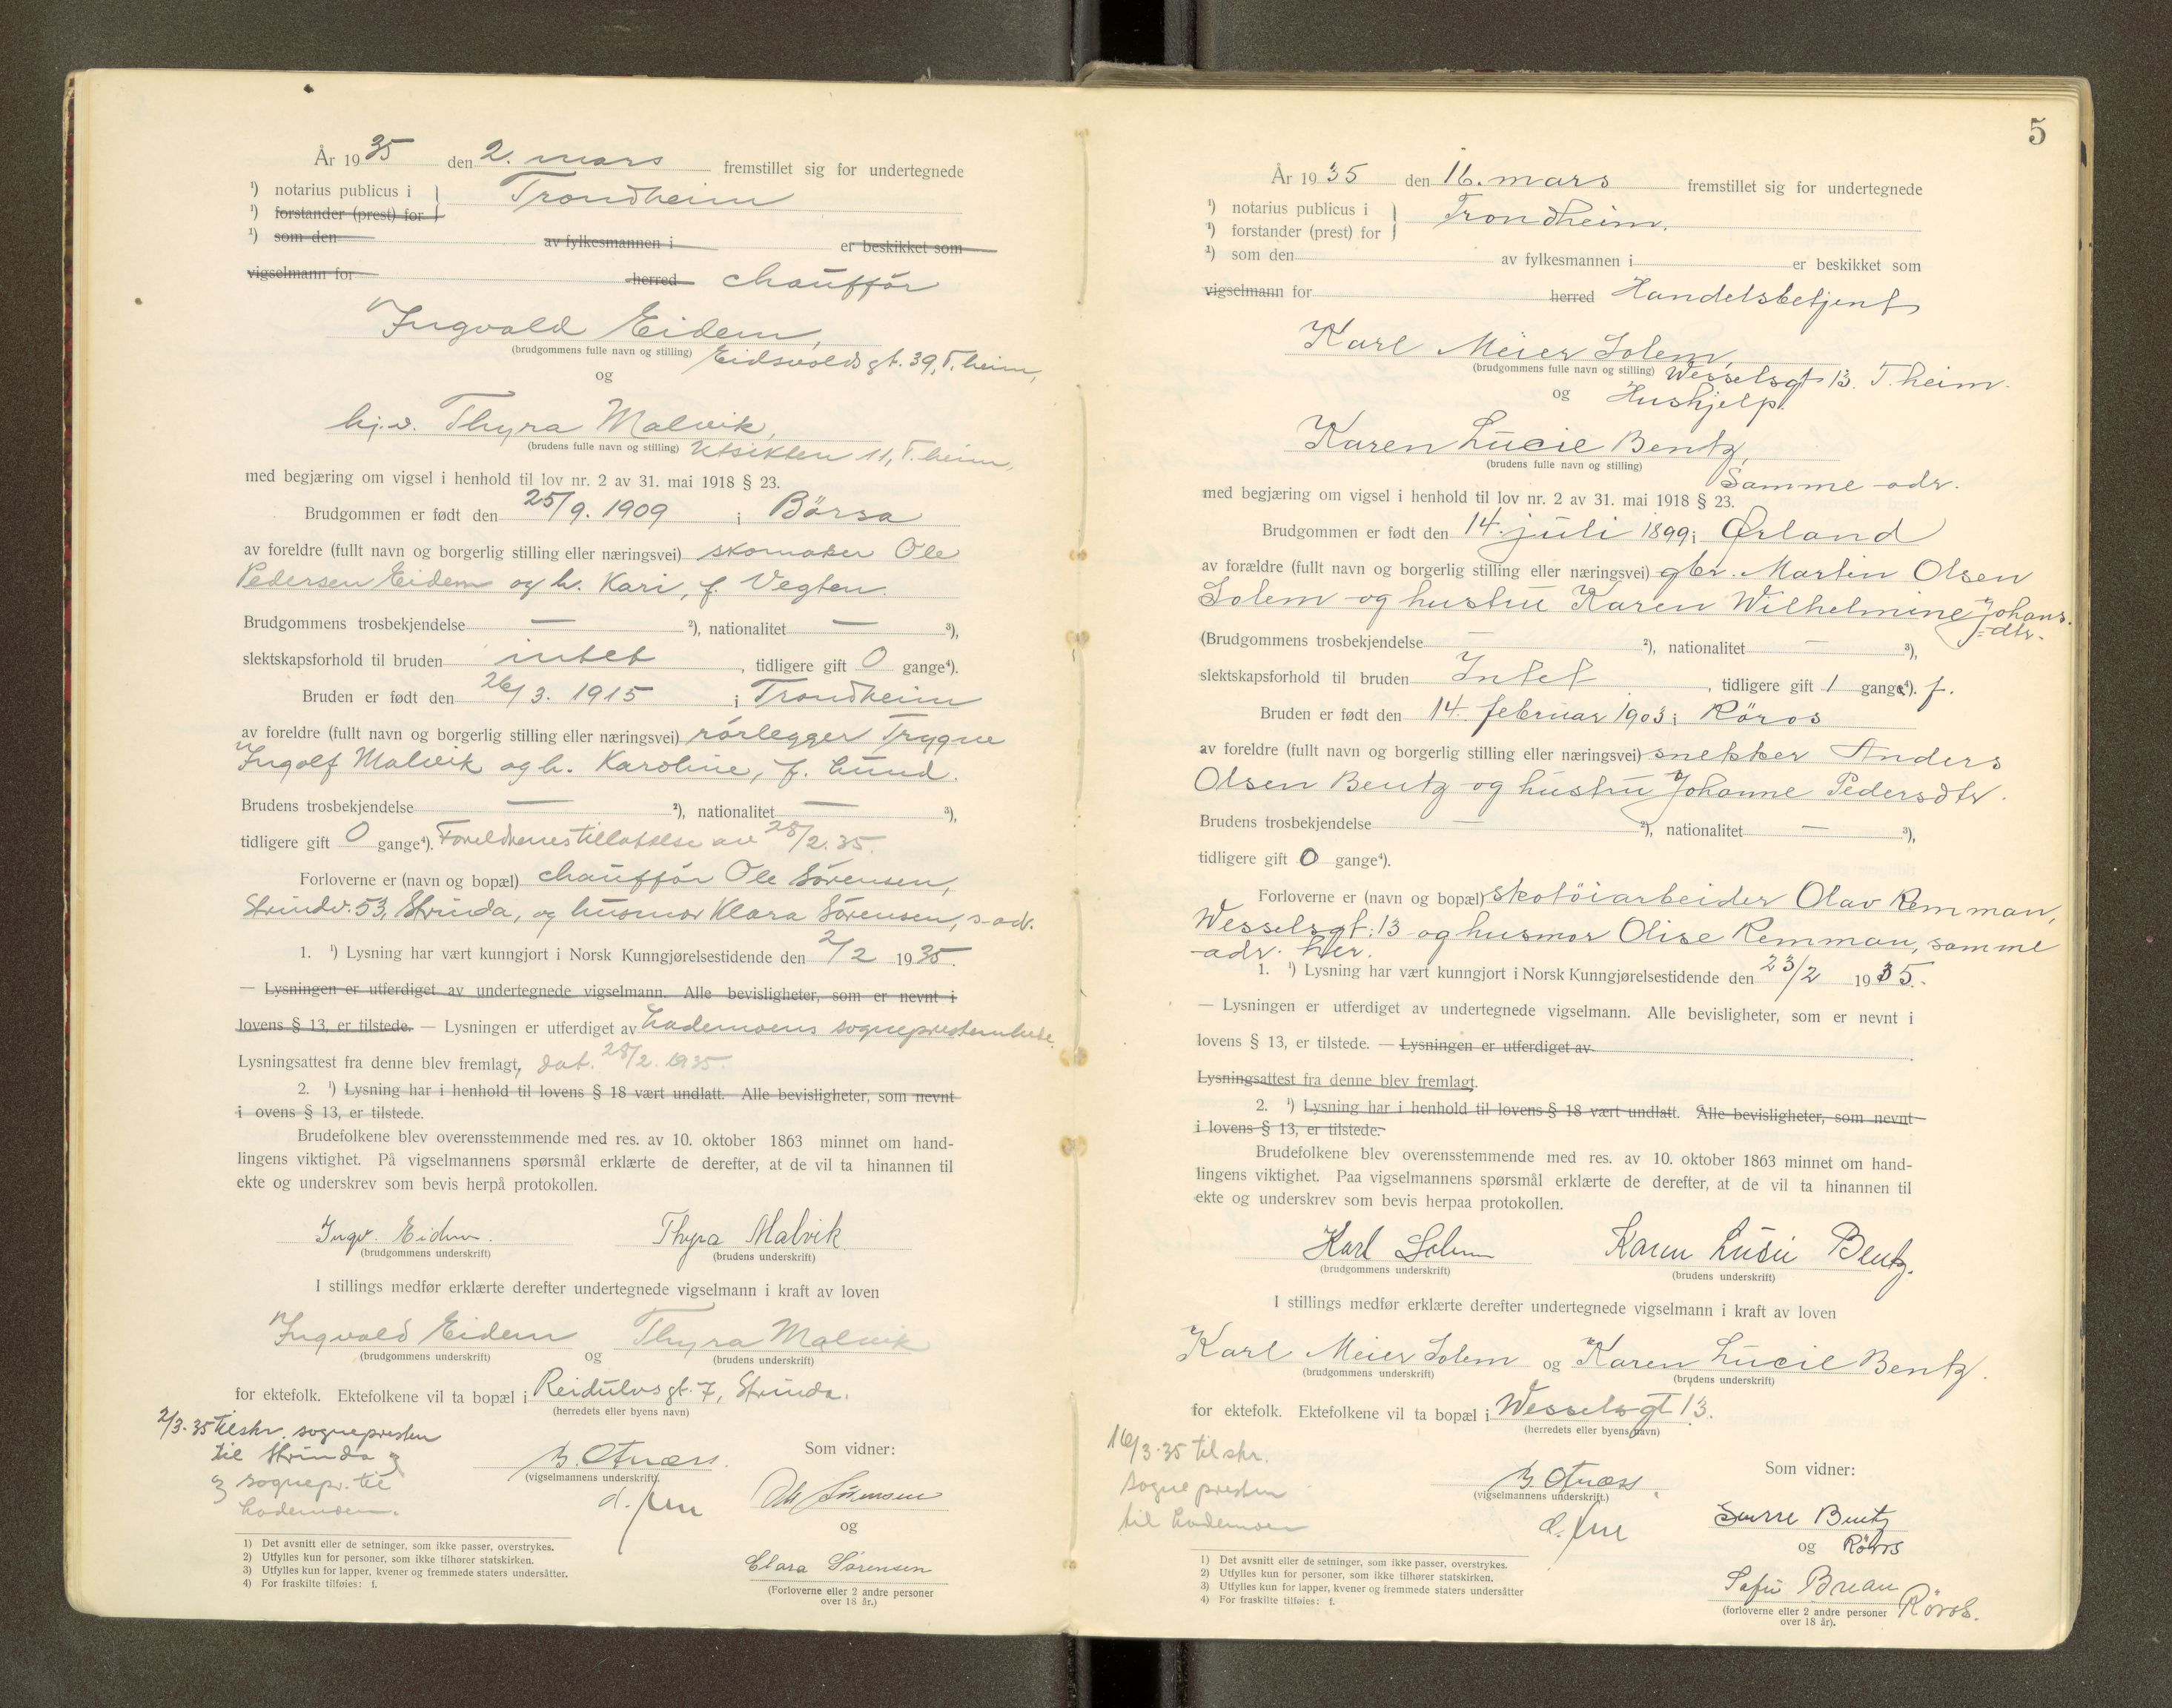 År 1935 den 2. mars fremstillet sig for undertegnede
¹) notarius publicus i } Trondheim
¹) forstander (prest) for
¹) som den av fylkesmannen i er beskikket som
vigselmann for herred chaufför
Ingvald Eidem,
(brudgommens fulle navn og stilling) Eidsvoldsgt. 39, T.heim,
og
hj.v. Thyra Malvik,
(brudens fulle navn og stilling) Utsikten 11, T.heim,
med begjæring om vigsel i henhold til lov nr. 2 av 31. mai 1918 § 23.
Brudgommen er født den 25/9. 1909 i Börsa
av foreldre (fullt navn og borgerlig stilling eller næringsvei) skomaker Ole
Pedersen Eidem og h. Kari, f. Vegten.
Brudgommens trosbekjendelse — ²), nationalitet — ³),
slektskapsforhold til bruden intet, tidligere gift 0 gange⁴).
Bruden er født den 26/3. 1915 i Trondheim
av foreldre (fullt navn og borgerlig stilling eller næringsvei) rörlegger Trygve
Ingolf Malvik og h. Karoline, f. Lund.
Brudens trosbekjendelse — ²), nationalitet — ³),
tidligere gift 0 gange⁴). Foreldrenes tillatelse av 28/2. 35.
Forloverne er (navn og bopæl) chaufför Ole Sörensen,
Strindv. 53, Strinda, og husmor Klara Sörensen, s. adr.
1. ¹) Lysning har vært kunngjort i Norsk Kunngjørelsestidende den 2/2 1935.
— Lysningen er utferdiget av undertegnede vigselmann. Alle bevisligheter, som er nevnt i
lovens § 13, er tilstede. — Lysningen er utferdiget av Lademoens sogneprestembede.
Lysningsattest fra denne blev fremlagt, dat. 28/2. 1935.
2. ¹) Lysning har i henhold til lovens § 18 vært undlatt. Alle bevisligheter, som nevnt
i ovens § 13, er tilstede.
Brudefolkene blev overensstemmende med res. av 10. oktober 1863 minnet om hand-
lingens viktighet. På vigselmannens spørsmål erklærte de derefter, at de vil ta hinannen til
ekte og underskrev som bevis herpå protokollen.
Ingv. Eidem. Thyra Malvik
(brudgommens underskrift) (brudens underskrift)
I stillings medfør erklærte derefter undertegnede vigselmann i kraft av loven
Ingvald Eidem og Thyra Malvik
(brudgommens underskrift) (brudens underskrift)
for ektefolk. Ektefolkene vil ta bopæl i Reidulvsgt. 7, Strinda.
(herredets eller byens navn)
2/3. 35 tilskr. sognepresten
til Strinda og
og sognepr. til
Lademoen.
B. Otnæss.
(vigselmannens underskrift).
Som vidner:
Ole Sörensen
og
Clara Sørensen
(Forloverne eller 2 andre personer
over 18 år.)
1) Det avsnitt eller de setninger, som ikke passer, overstrykes.
2) Utfylles kun for personer, som ikke tilhører statskirken.
3) Utfylles kun for lapper, kvener og fremmede staters undersåtter.
4) For fraskilte tilføies: f.
5
År 1935 den 16. mars fremstillet sig for undertegnede
¹) notarius publicus i } Trondheim.
¹) forstander (prest) for
¹) som den av fylkesmannen i er beskikket som
vigselmann for herred Handelsbetjent
Karl Meier Solem,
(brudgommens fulle navn og stilling) Wesselsgt 13. T.heim.
og Hushjelp.
Karen Lucie Bentz,
(brudens fulle navn og stilling)
Samme adr.
med begjæring om vigsel i henhold til lov nr. 2 av 31. mai 1918 § 23.
Brudgommen er født den 14. juli 1899 i Ørland
av forældre (fullt navn og borgerlig stilling eller næringsvei) gbr. Martin Olsen
Solem og hustru Karen Wilhelmine Johans.
-dtr.
(Brudgommens trosbekjendelse — ²), nationalitet — ³),
slektskapsforhold til bruden Intet, tidligere gift 1 gange⁴). f.
Bruden er født den 14. februar 1903 i Röros
av foreldre (fullt navn og borgerlig stilling eller næringsvei) snekker Anders
Olsen Bentz og hustru Johanne Pedersdtr.
Brudens trosbekjendelse — ²), nationalitet — ³),
tidligere gift 0 gange⁴).
Forloverne er (navn og bopæl) skotöiarbeider Olav Remman,
Wesselsgt. 13 og husmor Olise Remman, samme
adr. her.
1. ¹) Lysning har vært kunngjort i Norsk Kunngjørelsestidende den 23/2 1935.
— Lysningen er utferdiget av undertegnede vigselmann. Alle bevisligheter, som er nevnt i
lovens § 13, er tilstede. — Lysningen er utferdiget av
Lysningsattest fra denne blev fremlagt.
2. ¹) Lysning har i henhold til lovens § 18 vært undlatt. Alle bevisligheter, som nevnt
i lovens § 13, er tilstede.
Brudefolkene blev overensstemmende med res. av 10. oktober 1863 minnet om hand-
lingens viktighet. Paa vigselmannens spørsmål erklærte de derefter, at de vil ta hinannen til
ekte og underskrev som bevis herpaa protokollen.
Karl Solem Karen Lusie Bentz.
(brudgommens underskrift) (brudens underskrift)
I stillings medfør erklærte derefter undertegnede vigselmann i kraft av loven
Karl Meier Solem og Karen Lucie Bentz.
(brudgommens underskrift) (brudens underskrift)
for ektefolk. Ektefolkene vil ta bopæl i Wesselsgt 13.
(herredets eller byens navn)
16/3. 35 tilskr.
sognepresten
til Lademoen
B. Otnæss.
(vigselmannens underskrift.)
Som vidner:
Bentz
og Röros
Brean Röros.
(forloverne eller 2 andre personer
over 18 år).
1) Det avsnitt eller de setninger, som ikke passer, overstrykes.
2) Utfylles kun for personer, som ikke tilhører statskirken.
3) Utfylles kun for lapper, kvener og fremmede staters undersåtter
4) For fraskilte tilføies: f.